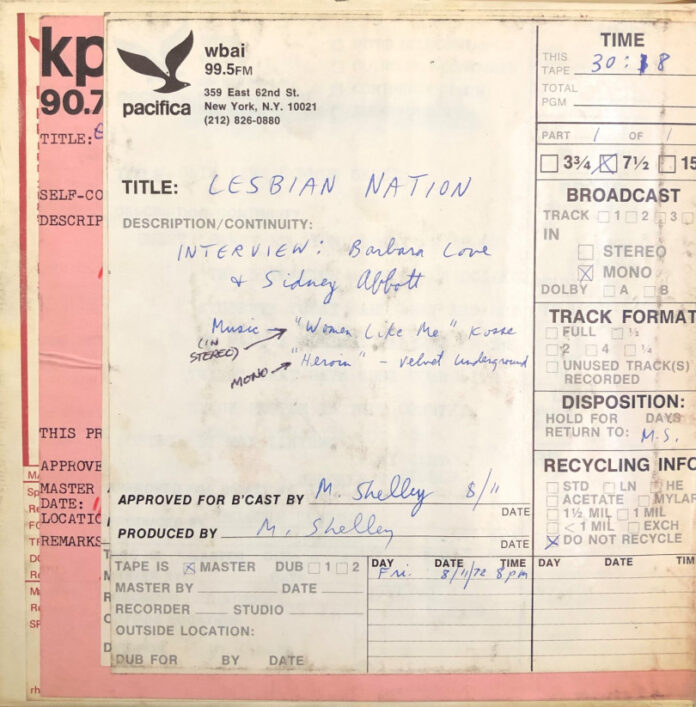 kp
90.7
TITLE:
SELF-CO
DESCRIP
THIS PR
APPROVE
MASTER
DATE:
LOCATIO
REMARKS
wbai
99.5FM
pacifica
359 East 62nd St.
New York, N.Y. 10021
(212) 826-0880
TITLE: LESBIAN NATION
DESCRIPTION/CONTINUITY:
INTERVIEW: Barbara Love
& Sidney Abbott
Music → "Women Like Me" Kosse
(IN STEREO)
"Heroin" - Velvet Underground
MONO →
APPROVED FOR B'CAST BY M. Shelley 8/11
DATE
PRODUCED BY M. Shelley
DATE
TAPE IS ☒ MASTER DUB ☐ 1 ☐ 2
MASTER BY DATE
RECORDER STUDIO
OUTSIDE LOCATION:
DUB FOR BY DATE
DAY DATE TIME
Fri. 8/11/72 8pm
TIME
THIS TAPE 30:18
TOTAL PGM
PART 1 OF 1
☐ 3¾ ☒ 7½ ☐ 15
BROADCAST
TRACK ☐ 1 ☐ 2 ☐ 3
IN
☐ STEREO
☒ MONO
DOLBY ☐ A ☐ B
TRACK FORMAT
☐ FULL ☐ ½
☐ 2 ☐ 4 ☐ ¼
☐ UNUSED TRACK(S)
RECORDED
DISPOSITION:
HOLD FOR DAYS
RETURN TO: M.S.
RECYCLING INFO
☐ STD ☐ LN ☐ HE
☐ ACETATE ☐ MYLAR
☐ 1½ MIL ☐ 1 MIL
☐ < 1 MIL ☐ EXCH
☒ DO NOT RECYCLE
DAY DATE TIM